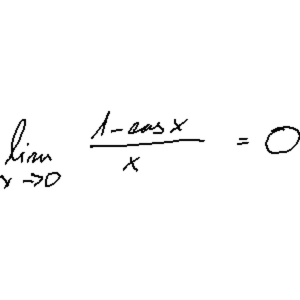 lim x→0 (1 - cos x) / x = 0